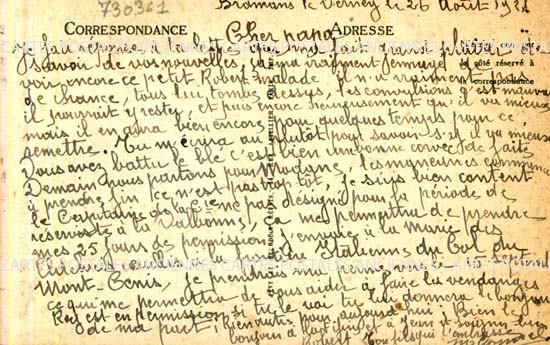 730361
Bramans le Verney le 26 Août
CORRESPONDANCE
ADRESSE
Cher papa
Je fais réponse à ta lettre qui m'a fait grand plaisir
de savoir de vos nouvelles, ça m'a vraiment ennuyé de
côté réservé à la correspondance
voir encore ce petit Robert malade, il n'a vraiment pas
de chance, tous lui tombe dessus, les convulsions c'est mauvais
il pourrait y rester, et puis encore heureusement qu'il va mieux
mais il en aura bien encore pour quelques temps pour ce
remettre. Tu m'écrira au plutôt pour savoir s'il va mieux
Vous avez battu le blé c'est bien une bonne corvée de faite
Demain nous partons pour Modane, les manœuvres commence
à prendre fin ce n'est pas trop tôt, je suis bien content
le Capitaine de la Cie ne pas désigné pour la période de
réserviste à la Valbonne, ça me permettra de prendre
mes 25 jours de permission, j'envoie à la marie des
Mont-Cenis, je prendrai ma perm vers le septembre
ce qui me permettra de vous aider à faire les vendanges
René est en permission si tu le voit tu lui donnera le bonjour
de ma part, Bien rien d'autre pour aujourd'hui à Bien le
bonjour à
Robert
Ton fils qui t'embrasse